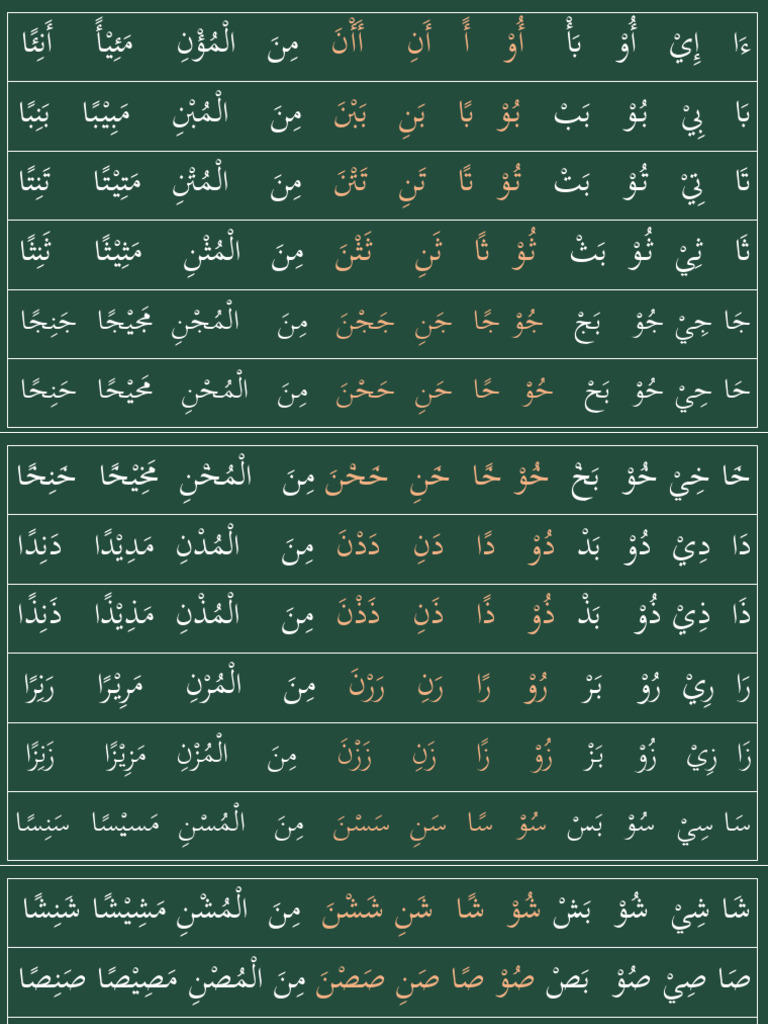 ءَا إِيْ أُوْ بَأْ أُوْ أً أَنِ أَأْنَ مِنَ الْمُؤْنِ مَئِيْأً أَنِئًا
بَا بِيْ بُوْ بَبْ بُوْ بًا بَنِ بَبْنَ مِنَ الْمُبْنِ مَبِيْبًا بَنِبًا
تَا تِيْ تُوْ بَتْ تُوْ تًا تَنِ تَتْنَ مِنَ الْمُتْنِ مَتِيْتًا تَنِتًا
ثَا ثِيْ ثُوْ بَثْ ثُوْ ثًا ثَنِ ثَثْنَ مِنَ الْمُثْنِ مَثِيْثًا ثَنِثًا
جَا جِيْ جُوْ بَجْ جُوْ جًا جَنِ جَجْنَ مِنَ الْمُجْنِ مَجَيْجًا جَنِجًا
حَا حِيْ حُوْ بَحْ حُوْ حًا حَنِ حَحْنَ مِنَ الْمُحْنِ مَحَيْحًا حَنِحًا
خَا خِيْ خُوْ بَخْ خُوْ خًا خَنِ خَخْنَ مِنَ الْمُخْنِ مَخِيْخًا خَنِخًا
دَا دِيْ دُوْ بَدْ دُوْ دًا دَنِ دَدْنَ مِنَ الْمُدْنِ مَدِيْدًا دَنِدًا
ذَا ذِيْ ذُوْ بَذْ ذُوْ ذًا ذَنِ ذَذْنَ مِنَ الْمُذْنِ مَذِيْذًا ذَنِذًا
رَا رِيْ رُوْ بَرْ رُوْ رًا رَنِ رَرْنَ مِنَ الْمُرْنِ مَرِيْرًا رَنِرًا
زَا زِيْ زُوْ بَزْ زُوْ زًا زَنِ زَزْنَ مِنَ الْمُزْنِ مَزِيْزًا زَنِزًا
سَا سِيْ سُوْ بَسْ سُوْ سًا سَنِ سَسْنَ مِنَ الْمُسْنِ مَسيْسًا سَنِسًا
شَا شِيْ شُوْ بَشْ شُوْ شًا شَنِ شَشْنَ مِنَ الْمُشْنِ مَشِيْشًا شَنِشًا
صَا صِيْ صُوْ بَصْ صُوْ صًا صَنِ صَصْنَ مِنَ الْمُصْنِ مَصِيْصًا صَنِصًا